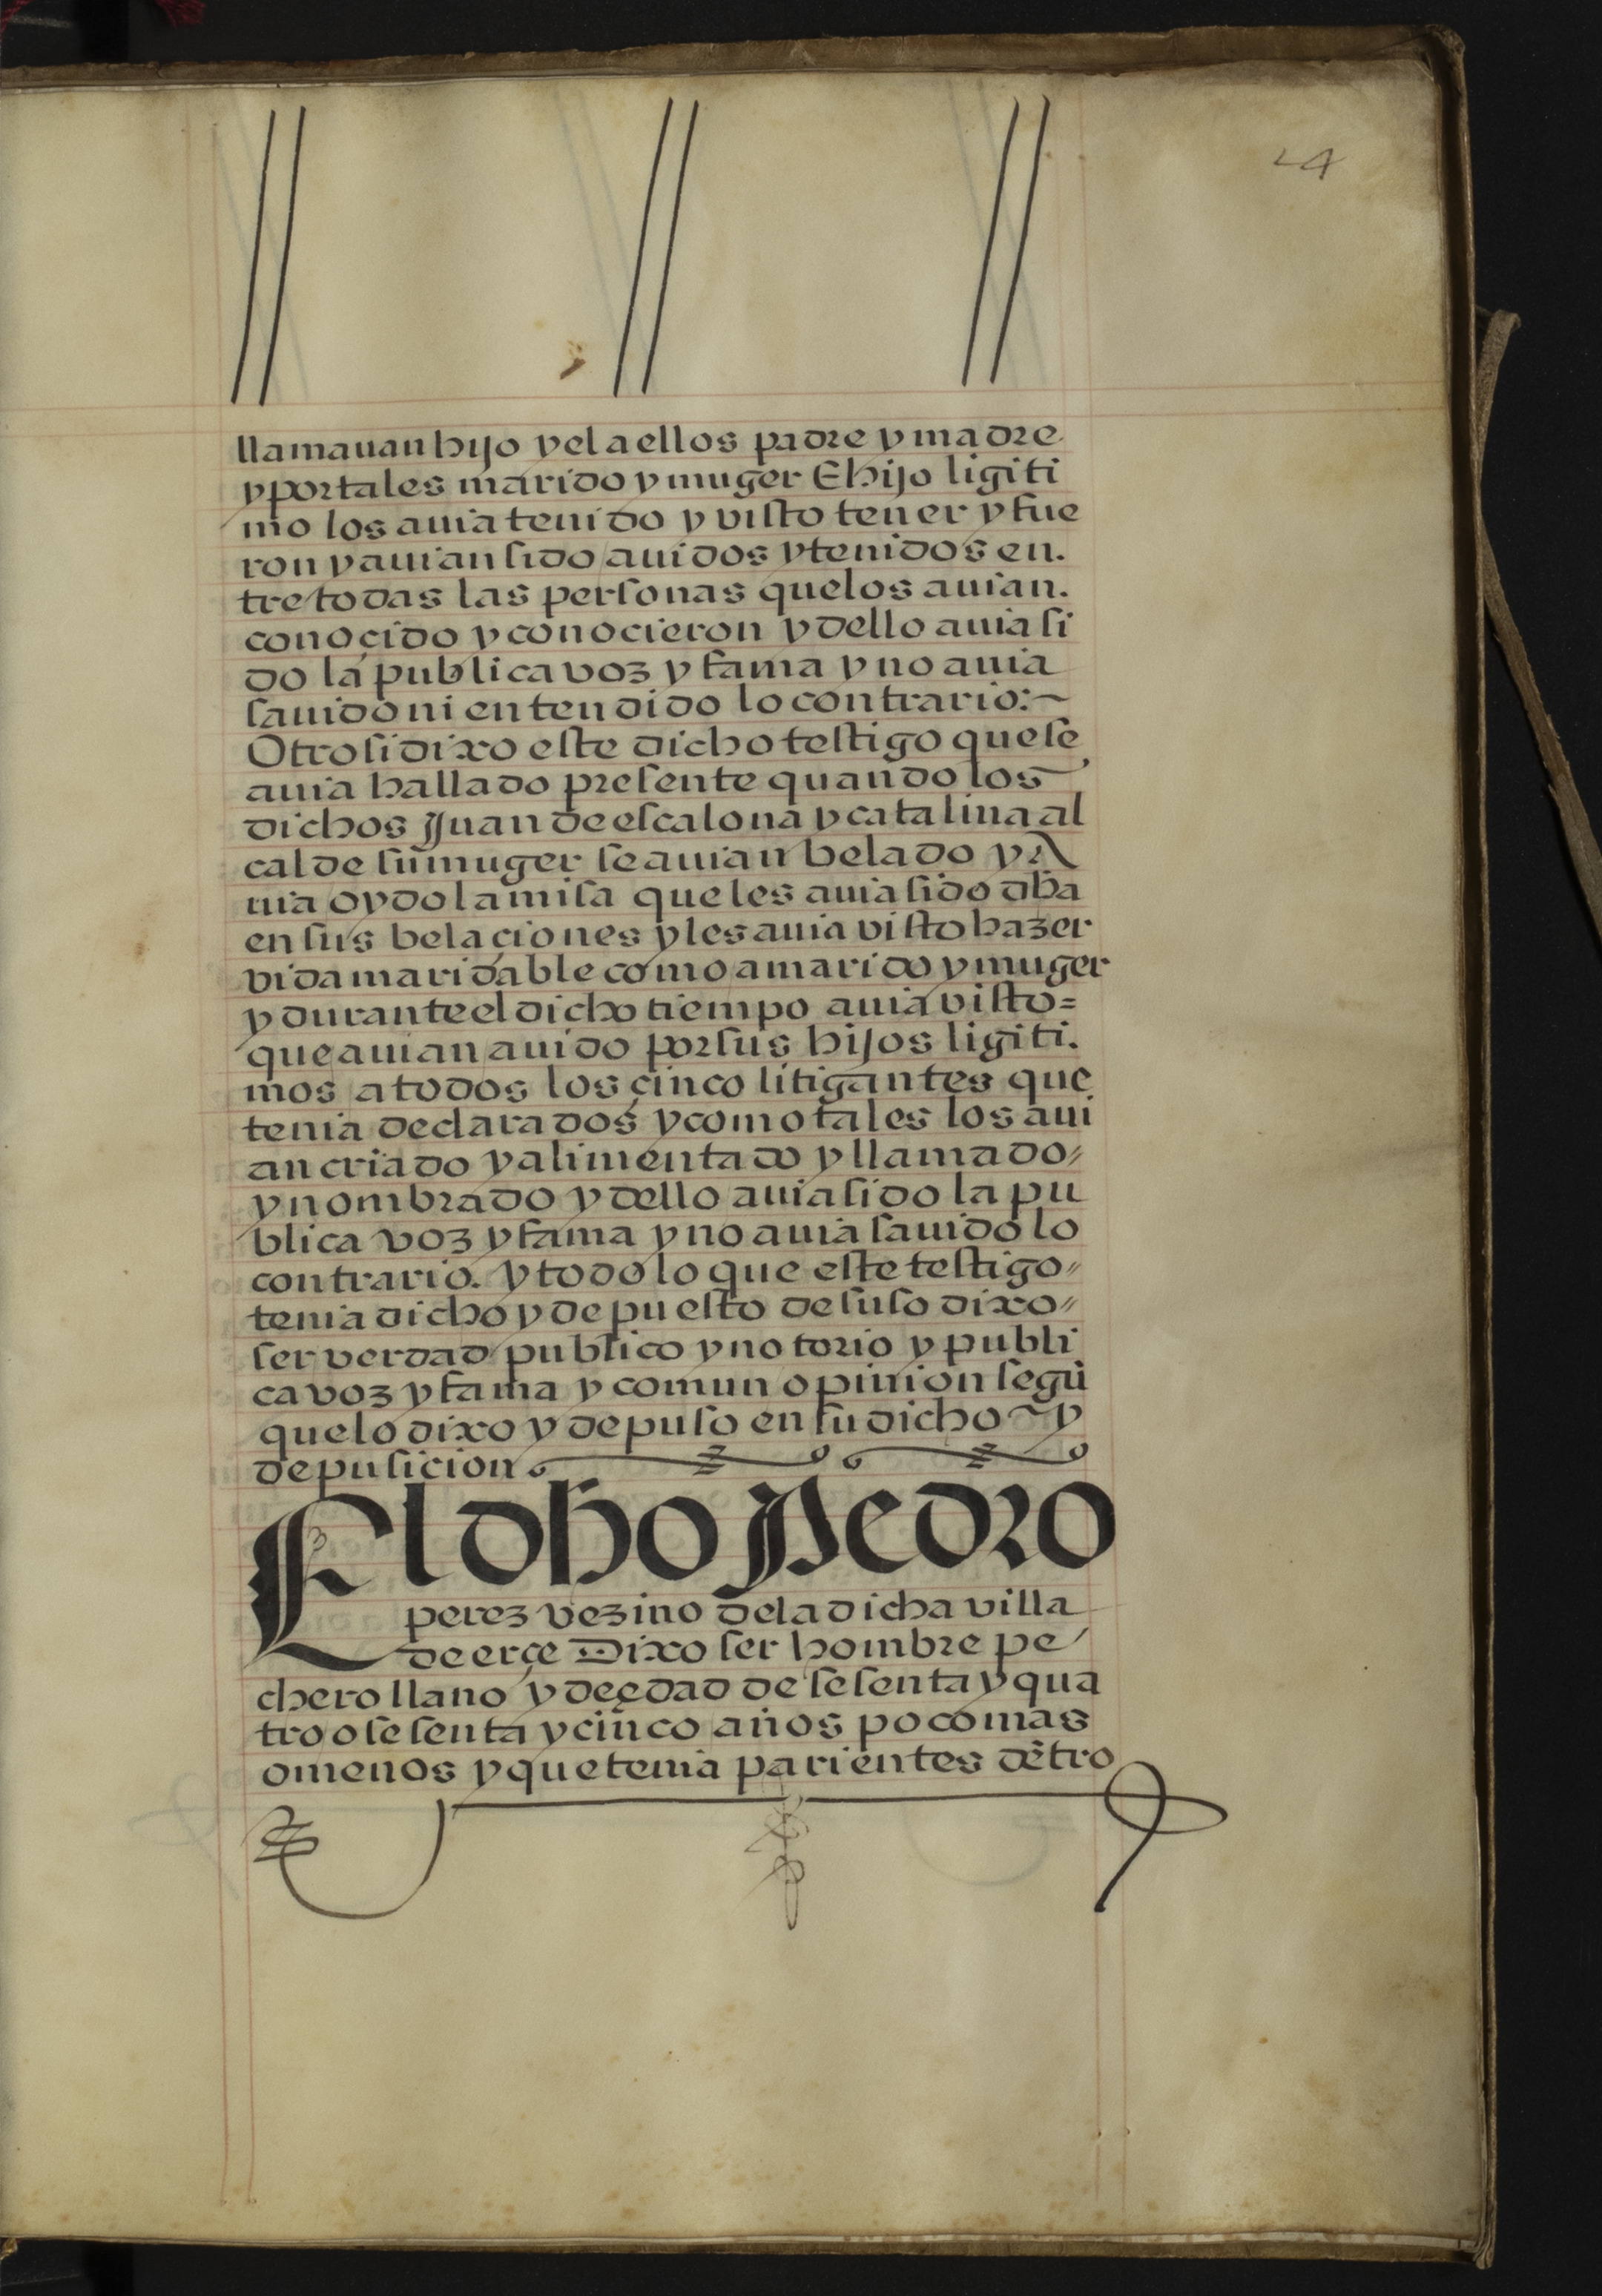 24
llamauan hijo y el a ellos padre y madre
y por tales marido y muger E hijo ligiti
mo los auia tenido y visto tener y fue
ron y auian sido auidos y tenidos en.
tre todas las personas que los auian.
conoçido y conocieron y dello auia si
do la publica voz y fama y no auia
sauido ni entendido lo contrario:~
Otrosi dixo este dicho testigo que se
auia hallado presente quando los
dichos Juan de escalona y catalina al
calde su muger se auian belado y A
uia oydo la misa que les auia sido dha
en sus belaçiones y les auia visto hazer
vida maridable como a marido y muger
y durante el dicho tiempo auia visto=
que auian auido por sus hijos ligiti.
mos a todos los çinco litigantes que
tenia declarados y como tales los aui
an criado y alimentado y llamado⸗
y nombrado y dello auia sido la pu
blica voz y fama y no auia sauido lo
contrario. y todo lo que este testigo⸗
tenia dicho y depuesto de suso dixo⸗
ser verdad publico y notorio y publi
ca voz y fama y comun opinion segũ
que lo dixo y depuso en su dicho ~ y
depusicion
El dho Pedro
perez vezino dela dicha villa
de erçe Dixo ser hombre pe
chero llano y de hedad de sesenta y qua
tro o sesenta y cinco años poco mas
o menos y que tenia parientes dẽtro